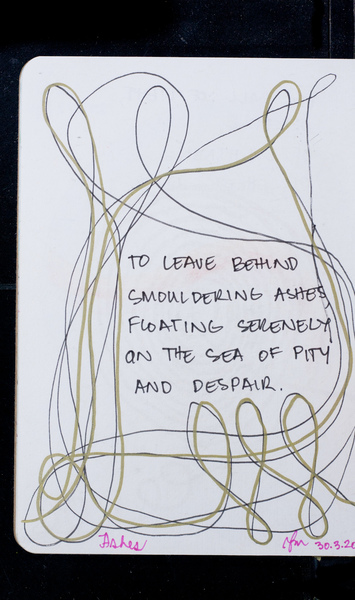 TO LEAVE BEHIND
SMOULDERING ASHES
FLOATING SERENELY
ON THE SEA OF PITY
AND DESPAIR.
Ashes
30.3.20